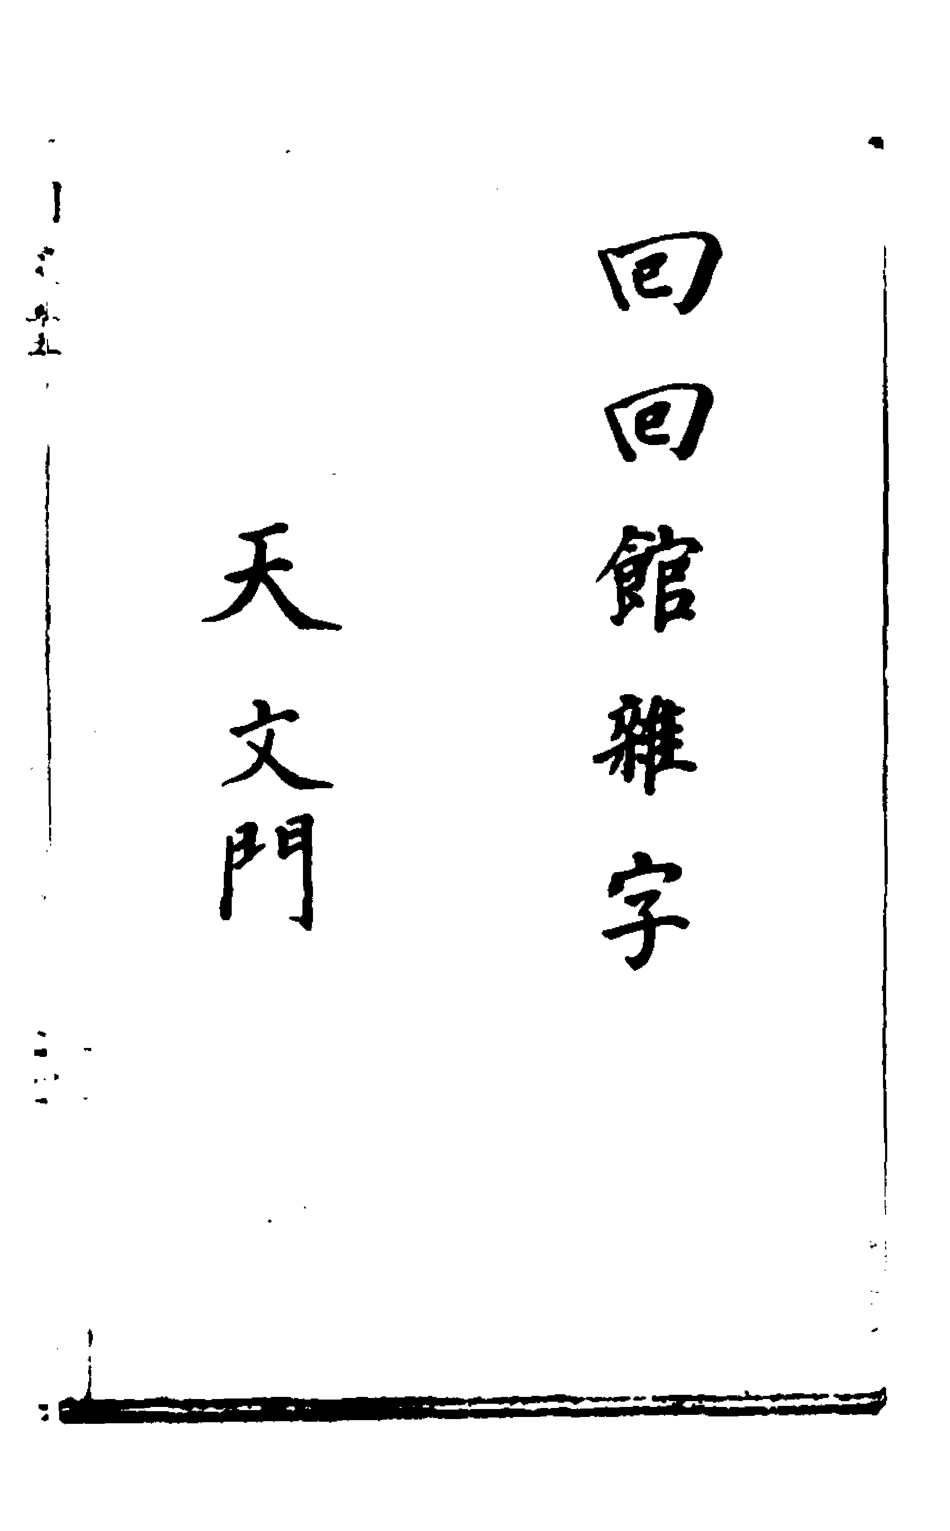 回回館雜字
天文門